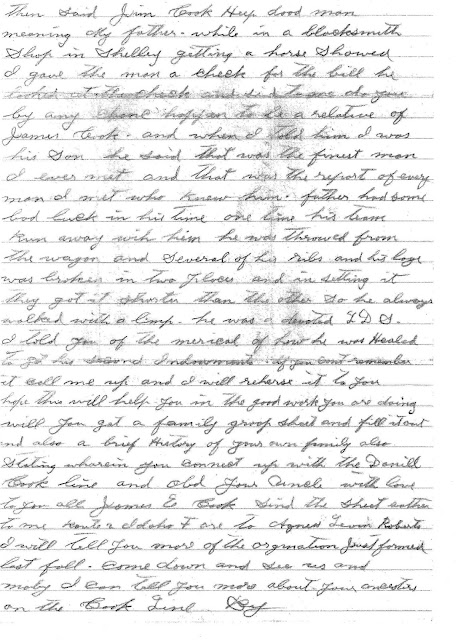 then said Jim Cook Heep dood man
meaning My father. while in a blacksmith
Shop in Shelley getting a horse Showed
I gave the man a check for the bill he
looked at the check and said to me do you
by any chanc happen to be a relative of
James Cook. and when I told him I was
his Son he said that was the finest man
I ever met and that was the report of every
man I met who knew him. father had some
bad luck in his time one time his team
Run away with him he was throwed from
the wagon and Several of his ribs and his legs
was broken in two places and in setting it
they got it shorter than the other So he always
walked with a limp. he was a devoted L D S.
I told you of the merical of how he was Healed
to get his second Indowments if you cant remember
it call me up and I will reherse it to you
hope this will help you in the good work you are doing
will you get a family groop sheet and fill it out
and also a brief History of your own family also
Stating wherein you connect up with the Daniel
Cook line and Obd your Uncle with love
to you all James E Cook Send the Sheet eather
to me 2 Idaho F or to Agnes Lewis Roberts
I will tell you more of the orgination Just formed
last fall. Come down and see us and
maby I can tell you more about your ancestors
on the Cook Line.